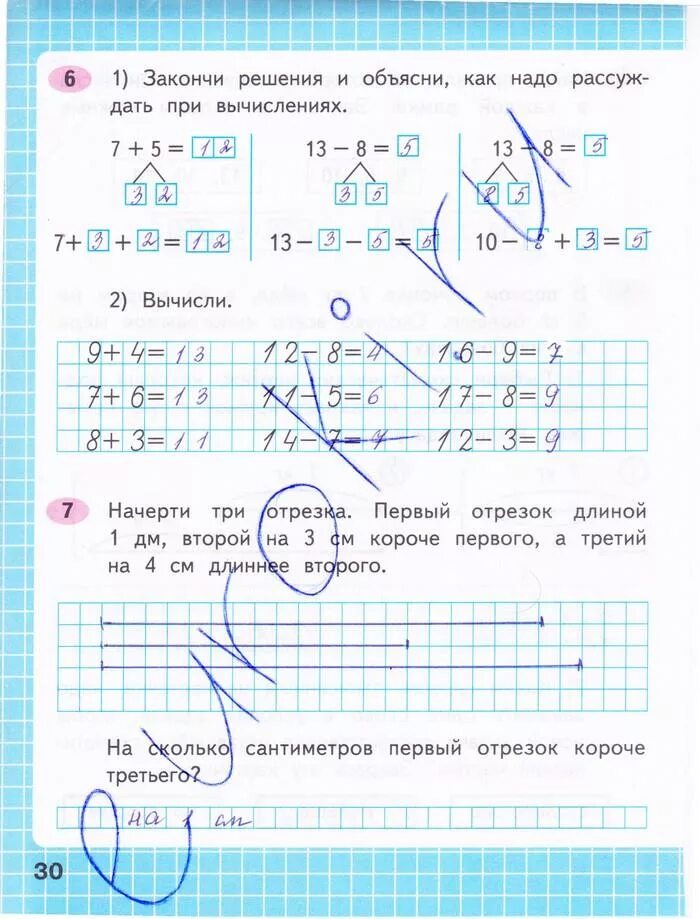 6 1) Закончи решения и объясни, как надо рассуж-
дать при вычислениях.
7 + 5 = 12 13 − 8 = 5 13 − 8 = 5
3 2 3 5 8 5
7+ 3 + 2 = 12 13− 3 − 5 = 5 10 − 8 + 3 = 5
2) Вычисли.
9+4=13 12−8=4 16−9=7
7+6=13 11−5=6 17−8=9
8+3=11 14−7=7 12−3=9
7 Начерти три отрезка. Первый отрезок длиной
1 дм, второй на 3 см короче первого, а третий
на 4 см длиннее второго.
На сколько сантиметров первый отрезок короче
третьего?
на 1 см
30